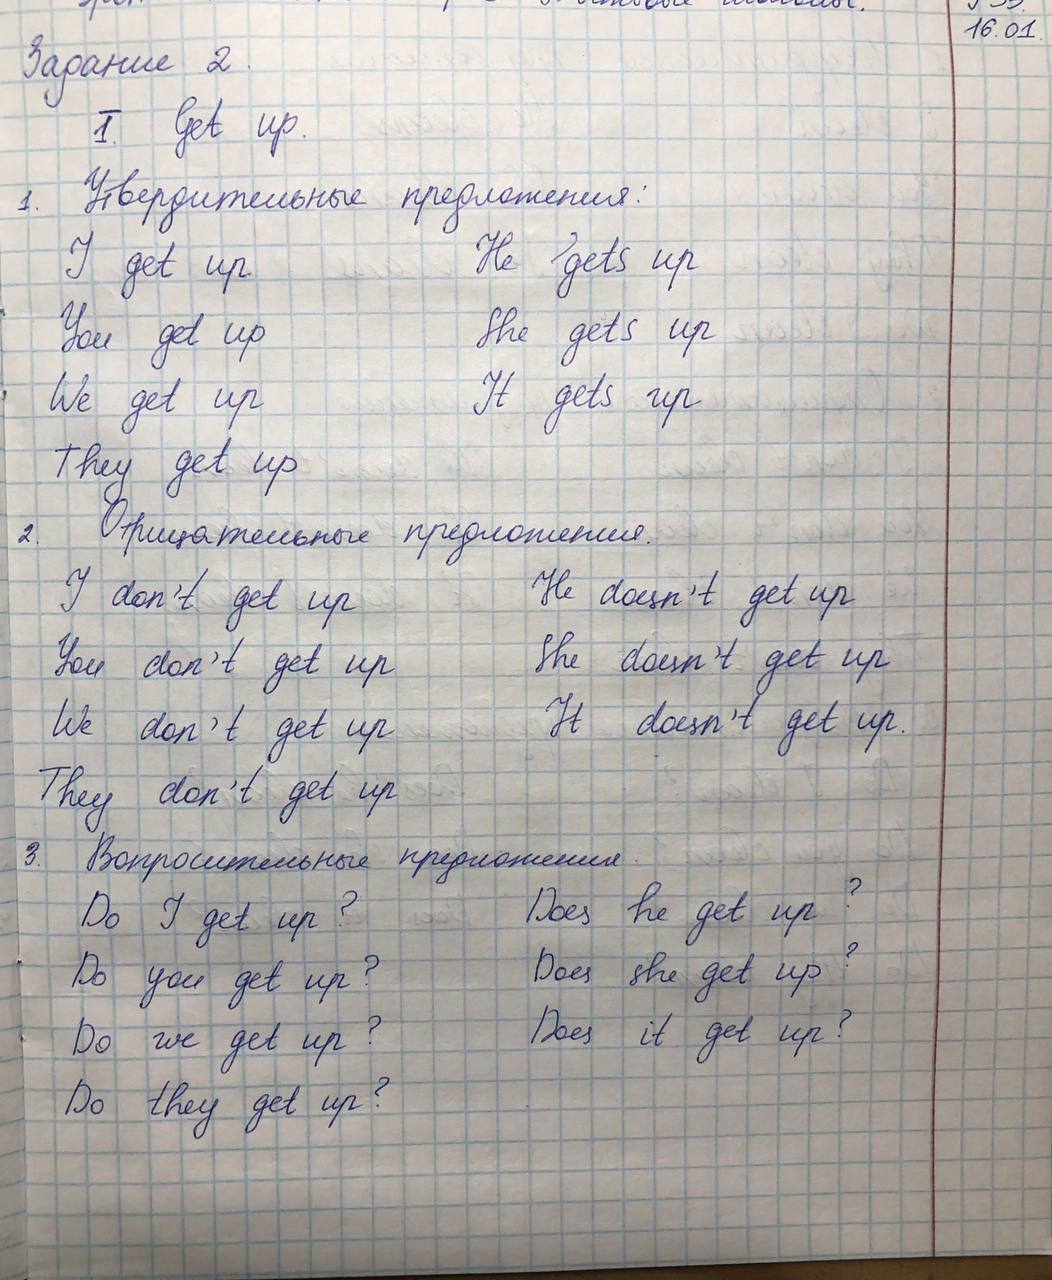 16.01.
Задание 2.
I. Get up.
1. Утвердительные предложения:
I get up He gets up
You get up She gets up
We get up It gets up
They get up
2. Отрицательные предложения.
I don't get up He doesn't get up
You don't get up She doesn't get up
We don't get up It doesn't get up.
They don't get up
3. Вопросительные предложения.
Do I get up? Does he get up?
Do you get up? Does she get up?
Do we get up? Does it get up?
Do they get up?